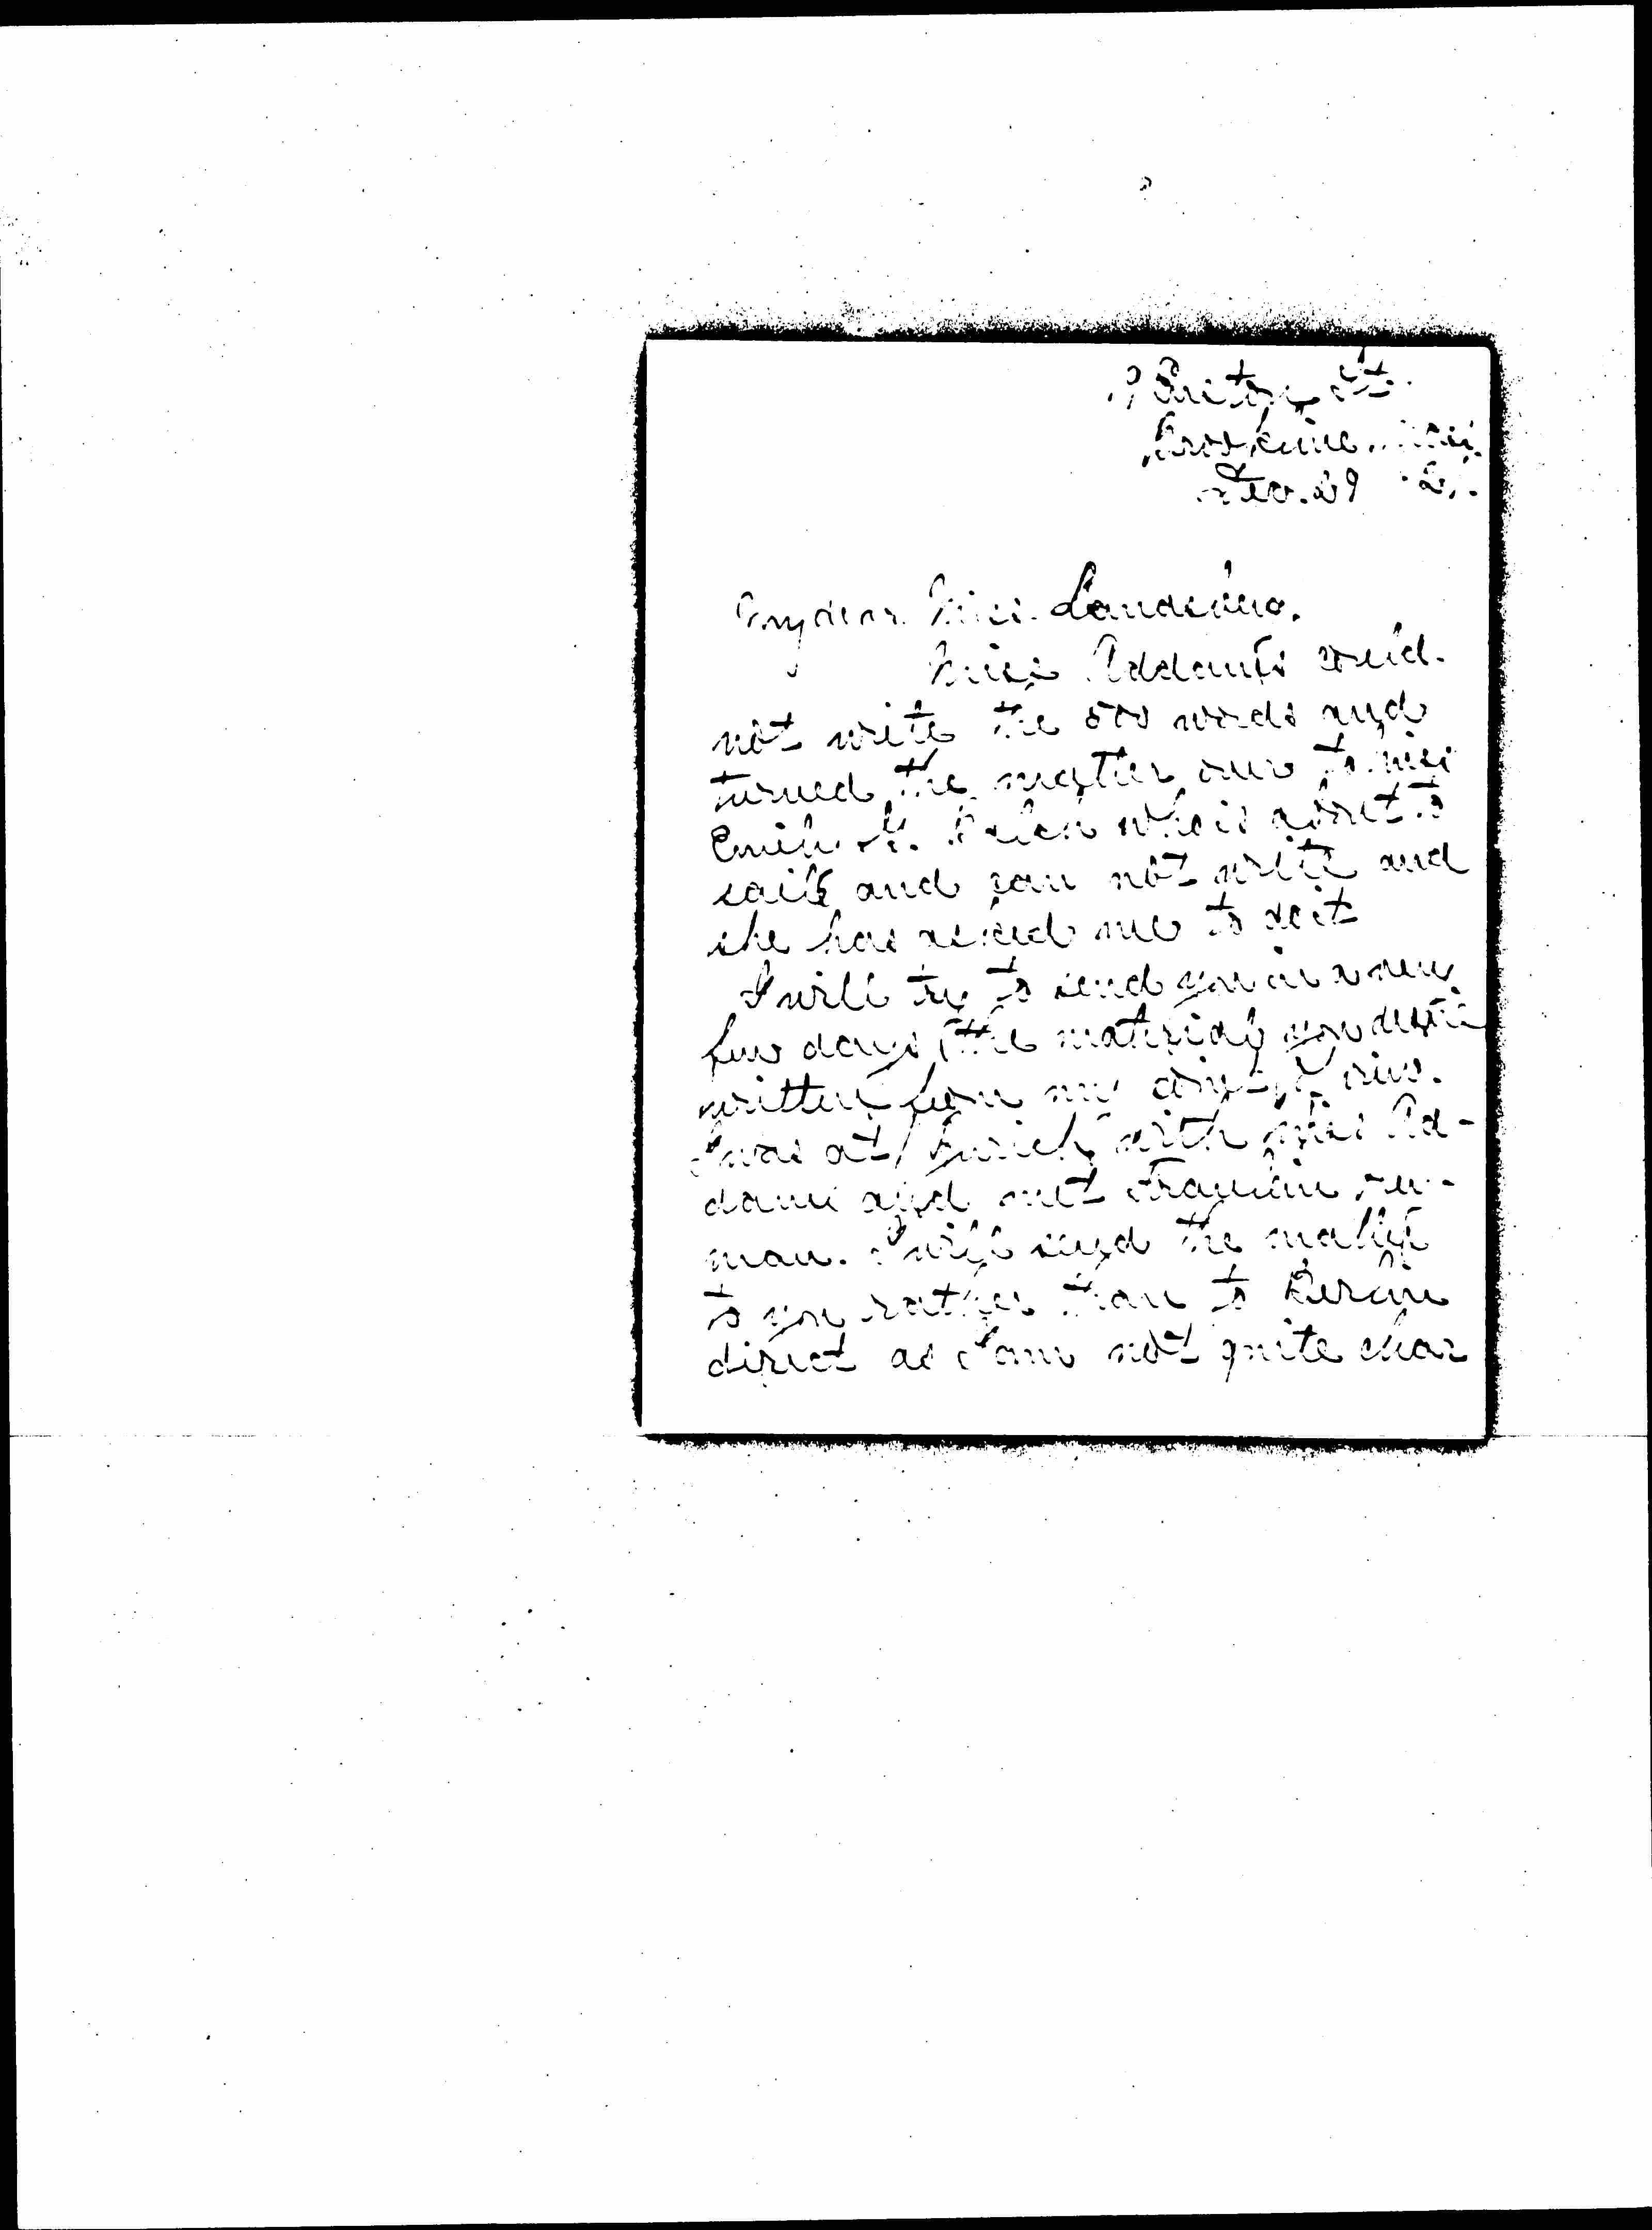 Brookline, 
Feb. 29
My dear Miss Landazuri.
Miss Addams could
not write the 500 words and
turned the matter over to Miss
Emily G. Balch who is about to
sail and can not write and
she has asked me to do it
I will try to send you in a very
few days the material you desire
written from my 
I was at Zurich with Miss Ad-
dams and met Fraulein Hey-
man. I will send the matter
to you rather than to Berlin
direct as I am not quite clear